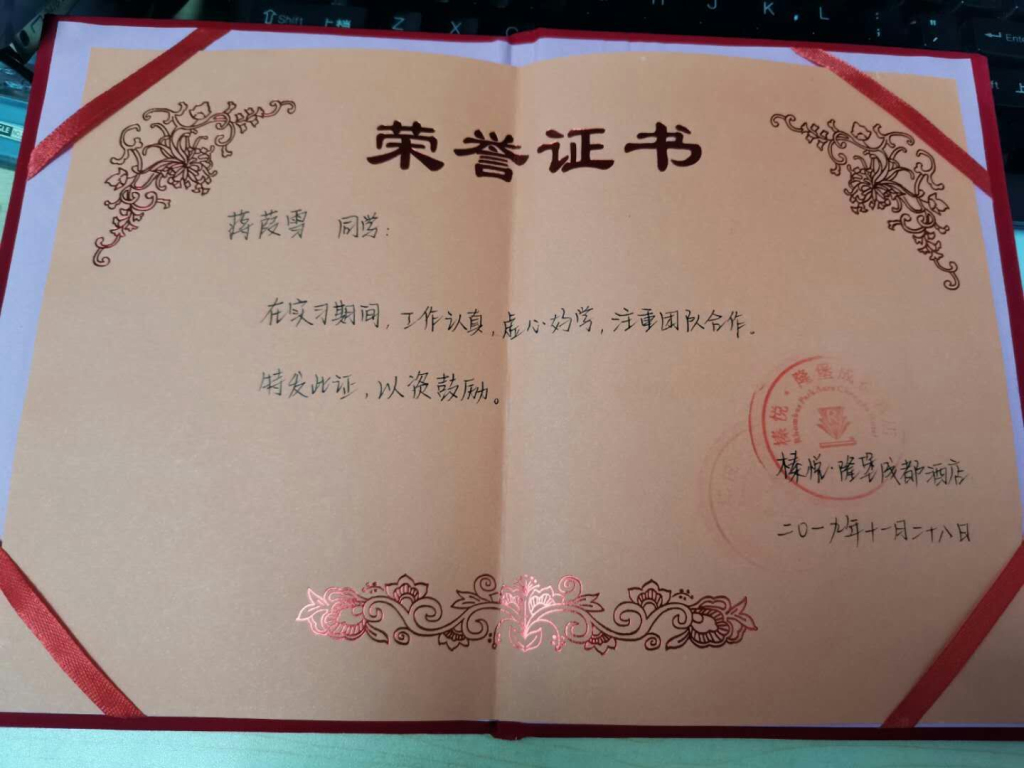 Shift 上档 Z X J K L Enter
荣誉证书
蒋葭雪 同学：
在实习期间，工作认真，虚心好学，注重团队合作。
特发此证，以资鼓励。
榛悦·隆堡成都酒店
榛悦·隆堡成都酒店
二〇一九年十一月二十八日